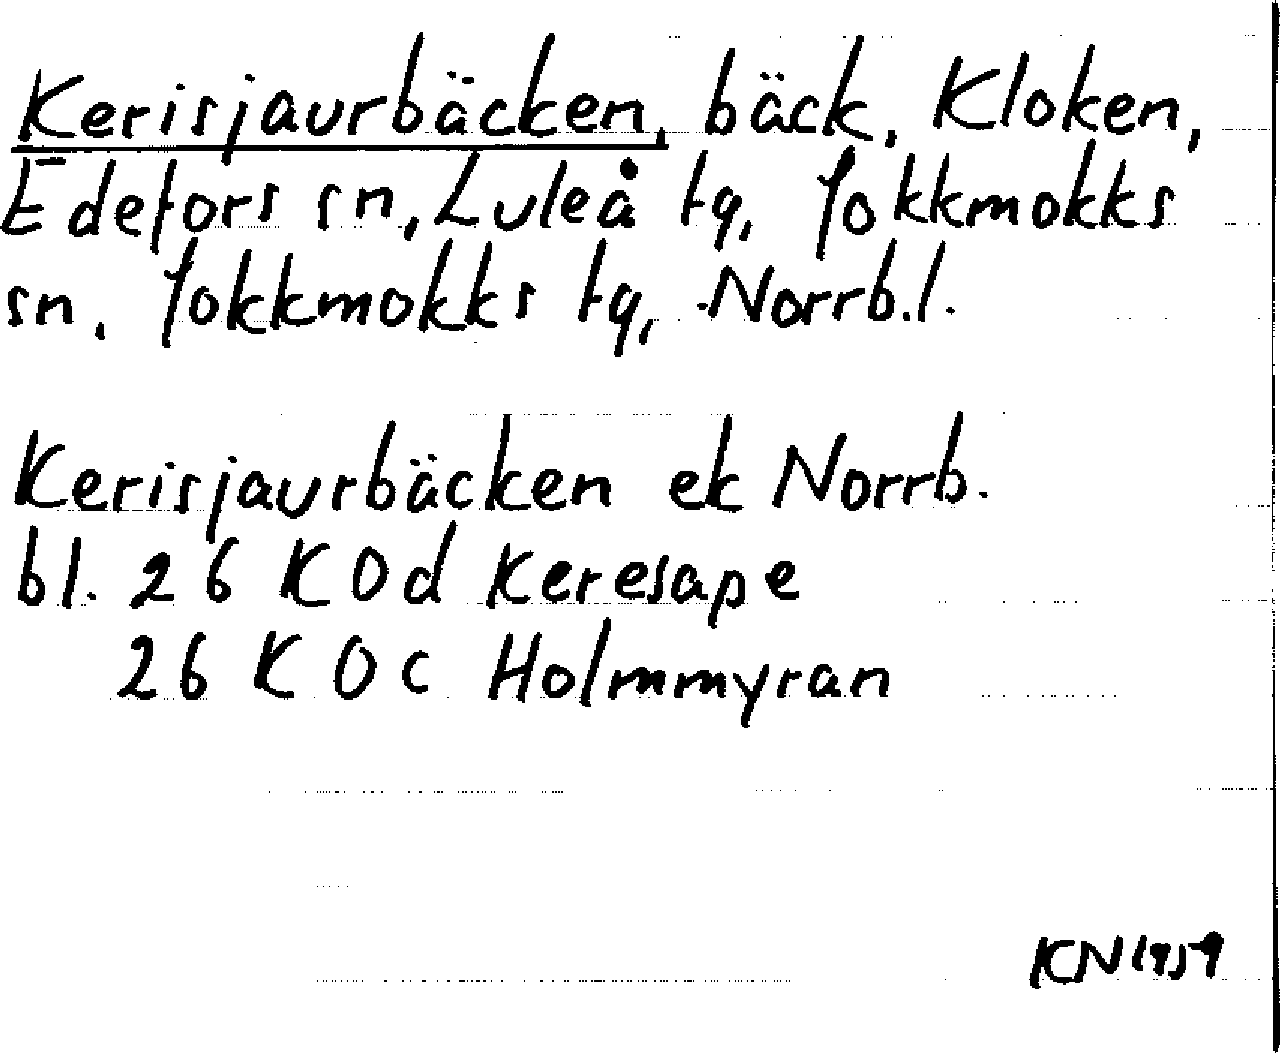 Kerisjaurbäcken, bäck, Kloken,
Edefors sn, Luleå tg, Jokkmokks
sn, Jokkmokks tg, Norrb.l.
Kerisjaurbäcken ek Norrb.
bl. 26 K 0d Keresape
26 K 0c Holmmyran
KN 1959